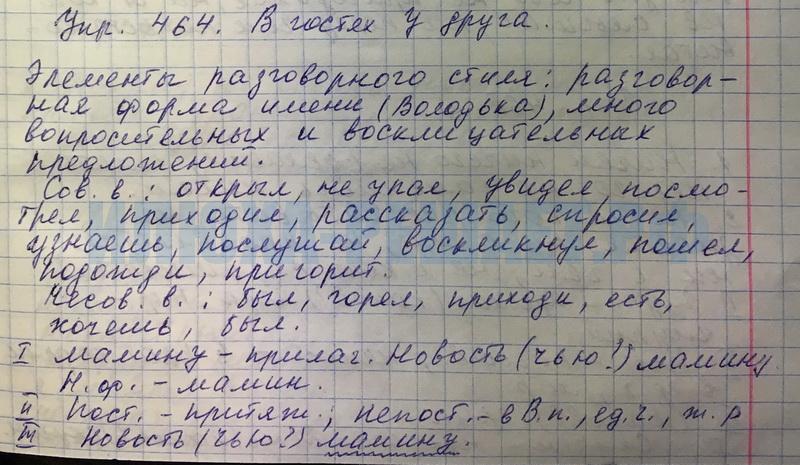 Упр. 464. В гостях у друга.
Элементы разговорного стиля: разговор-
ная форма имени (Володька), много
вопросительных и восклицательных
предложений.
Сов. в.: открыл, не упал, увидел, посмо-
трел, приходил, рассказать, спросил,
узнаешь, послушай, воскликнул, пошел,
подожди, пригорит.
Несов. в.: был, горел, приходи, есть,
хочешь, был.
I мамину - прилаг. Новость (чью?) мамину.
Н.ф. - мамин.
II Пост. - притяж.; непост. - в В.п., ед.ч., ж.р
III Новость (чью?) мамину.